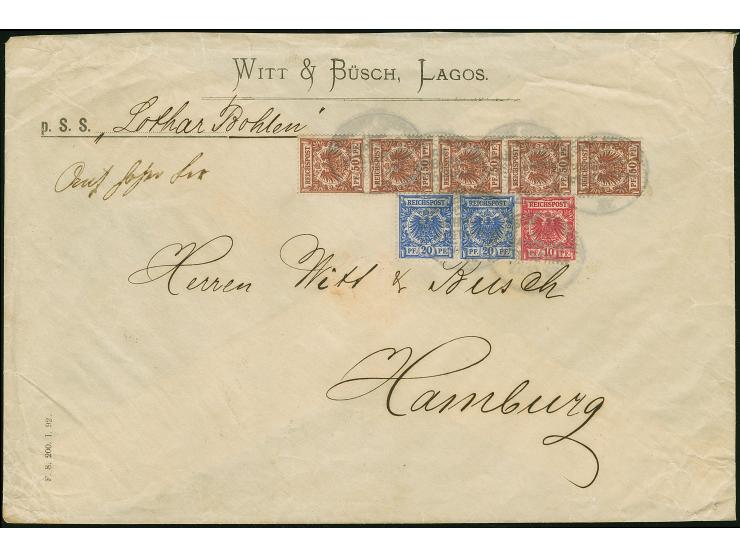 WITT & BÜSCH, LAGOS.
p. S. S. „Lothar Bohlen"
Auf hoher See
REICHSPOST PF. 50 PF.
REICHSPOST PF. 50 PF.
REICHSPOST PF. 50 PF.
REICHSPOST PF. 50 PF.
REICHSPOST PF. 50 PF.
REICHSPOST PF. 20 PF.
REICHSPOST PF. 20 PF.
REICHSPOST PF. 10 PF.
Herren Witt & Büsch
Hamburg
F. 8. 200. I. 92.